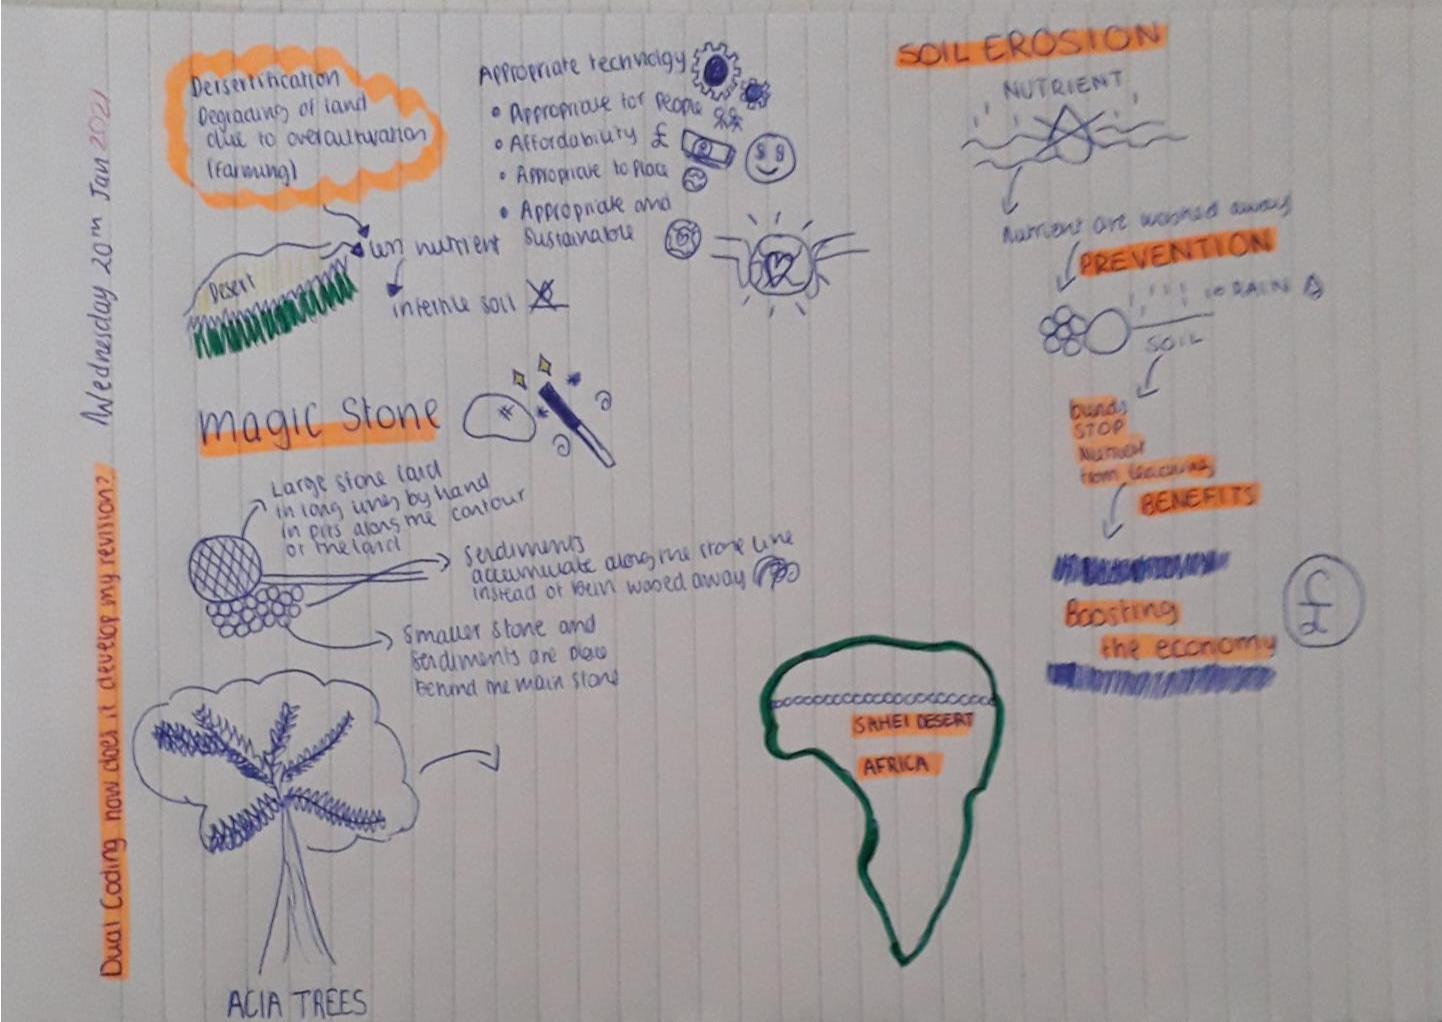 Wednesday 20th Jan 2021
Dual Coding how does it develop my revision?
Desertification
Degrading of land
due to overcultivation
(farming)
un nutrient
infertile soil
Desert
Appropriate technolgy
• Appropriate for People
• Affordability £
• Appropriate to Place
• Appropriate and
Sustainable
magic Stone
Large stone laid
in long lines by hand
in pits along the contour
of the land
Serdiments
accumulate along the stone line
instead of bein waved away
Smaller stone and
Serdiments are place
behind the main stone
ACIA TREES
SAHEI DESERT
AFRICA
SOIL EROSION
NUTRIENT
Nutrient are washed away
PREVENTION
RAIN
SOIL
bunds
STOP
Nutrient
from leaching
BENEFITS
Boosting
the economy
£